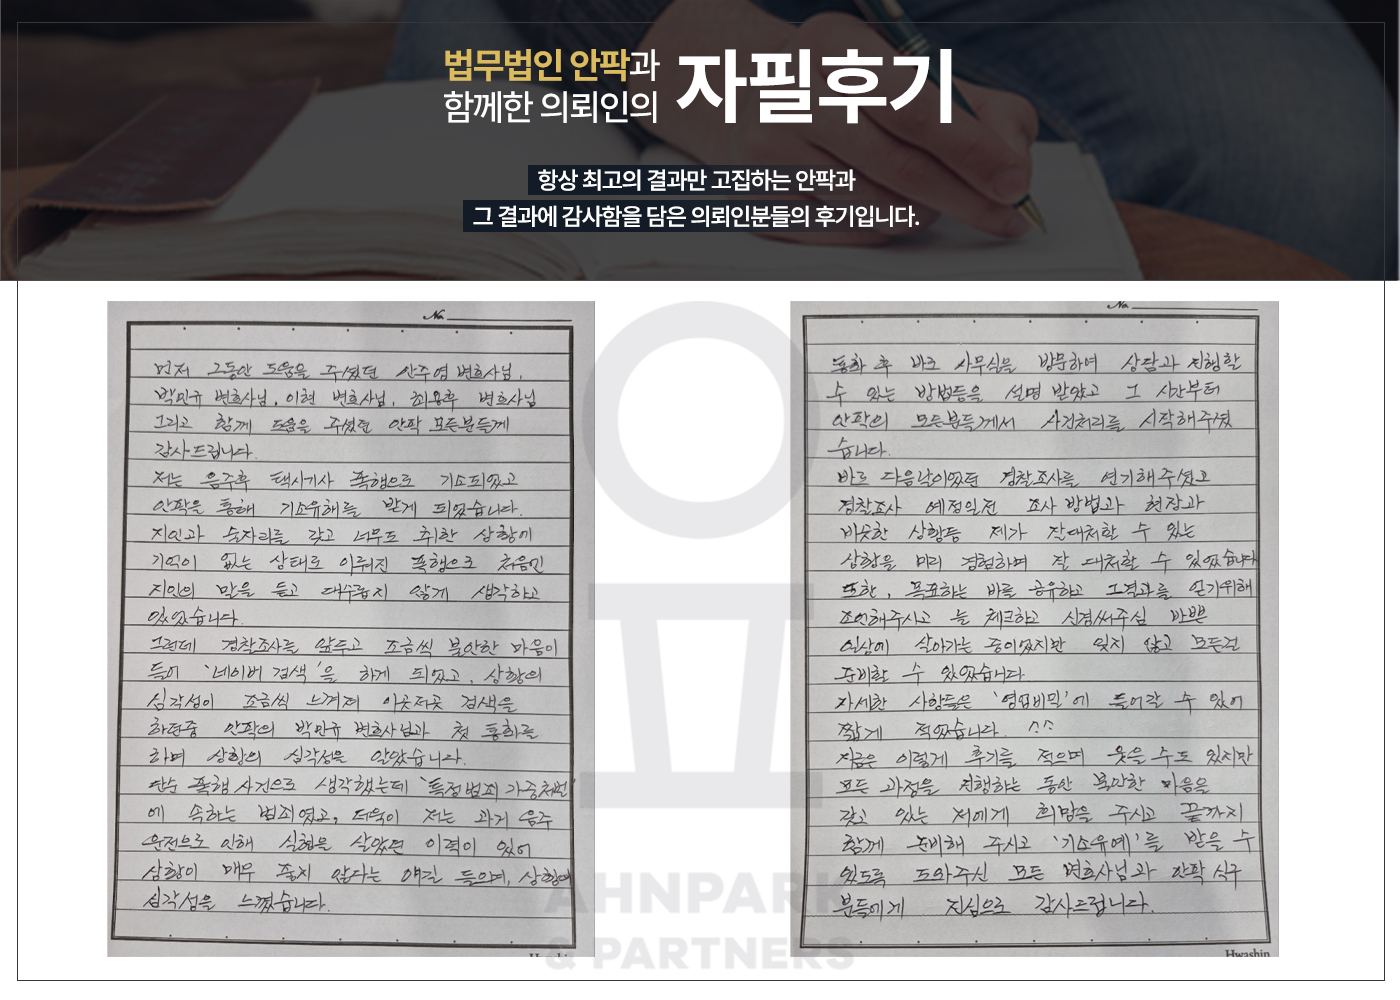 법무법인 안팍과
함께한 의뢰인의
자필후기
항상 최고의 결과만 고집하는 안팍과
그 결과에 감사함을 담은 의뢰인분들의 후기입니다.
No.
먼저 그동안 도움을 주셨던 안주영 변호사님,
박민규 변호사님, 이현 변호사님, 최용후 변호사님
그리고 함께 도움을 주셨던 안팍 모든분들께
감사드립니다.
저는 음주후 택시기사 폭행으로 기소되었고
안팍을 통해 기소유예를 받게 되었습니다.
지인과 술자리를 갖고 너무도 취한 상황에
기억이 없는 상태로 이뤄진 폭행으로 처음엔
지인의 말을 듣고 대수롭지 않게 생각하고
있었습니다.
그런데 경찰조사를 앞두고 조금씩 불안한 마음이
들어 '네이버 검색'을 하게 되었고, 상황의
심각성이 조금씩 느껴져 이곳저곳 검색을
하던중 안팍의 박민규 변호사님과 첫 통화를
하며 상황의 심각성을 알았습니다.
단순 폭행 사건으로 생각했는데 '특정범죄 가중처벌'
에 속하는 범죄였고, 더욱이 저는 과거 음주
운전으로 인해 실형을 살았던 이력이 있어
상황이 매우 좋지 않다는 얘길 들으며, 상황의
심각성을 느꼈습니다.
No.
통화 후 바로 사무실을 방문하여 상담과 진행할
수 있는 방법등을 설명 받았고 그 시간부터
안팍의 모든분들께서 사건처리를 시작해주셨
습니다.
바로 다음날이었던 경찰조사를 연기해주셨고
경찰조사 예정일전 조사 방법과 현장과
비슷한 상황등 제가 잘대처할 수 있는
상황을 미리 경험하며 잘 대처할 수 있었습니다
또한, 목표하는 바를 공유하고 그결과를 얻기위해
조언해주시고 늘 체크하고 신경써주심 바쁜
일상에 살아가는 중이었지만 잊지 않고 모든걸
준비할 수 있었습니다.
자세한 사항들은 '영업비밀'에 들어갈 수 있어
짧게 적었습니다. ^^
지금은 이렇게 후기를 적으며 웃을 수도 있지만
모든 과정을 진행하는 동안 불안한 마음을
갖고 있는 저에게 희망을 주시고 끝까지
함께 준비해 주시고 '기소유예'를 받을 수
있도록 도와주신 모든 변호사님과 안팍 식구
분들에게 진심으로 감사드립니다.
Hwashin
AHNPARK
& PARTNERS